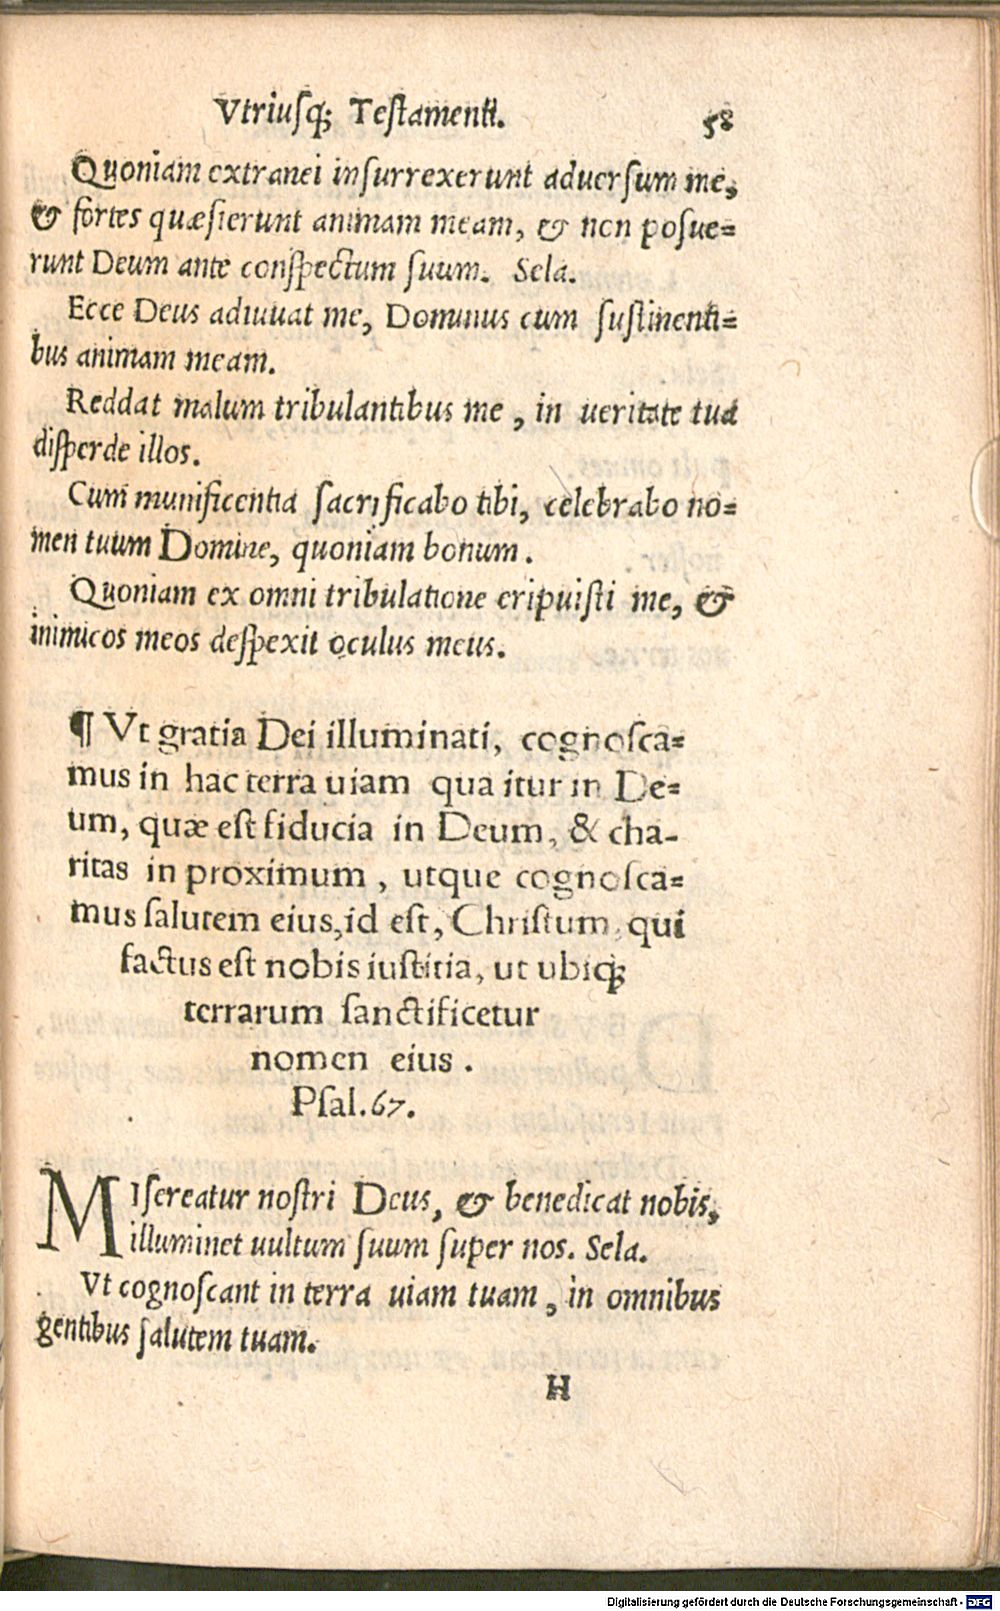 Vtriusq; Testamenti. 58
Quoniam extranei insurrexerunt aduersum me,
& fortes quæsierunt animam meam, & non posue=
runt Deum ante conspectum suum. Sela.
Ecce Deus adiuuat me, Dominus cum sustinenti=
bus animam meam.
Reddat malum tribulantibus me, in ueritate tua
disperde illos.
Cum munificentia sacrificabo tibi, celebrabo no=
men tuum Domine, quoniam bonum.
Quoniam ex omni tribulatione eripuisti me, &
inimicos meos despexit oculus meus.
¶ Vt gratia Dei illuminati, cognosca=
mus in hac terra uiam qua itur in De=
um, quæ est fiducia in Deum, & cha-
ritas in proximum, utque cognosca=
mus salutem eius, id est, Christum, qui
factus est nobis iustitia, ut ubiq;
terrarum sanctificetur
nomen eius.
Psal. 67.
MIsereatur nostri Deus, & benedicat nobis,
illuminet uultum suum super nos. Sela.
Vt cognoscant in terra uiam tuam, in omnibus
gentibus salutem tuam.
H
Digitalisierung gefördert durch die Deutsche Forschungsgemeinschaft - DFG